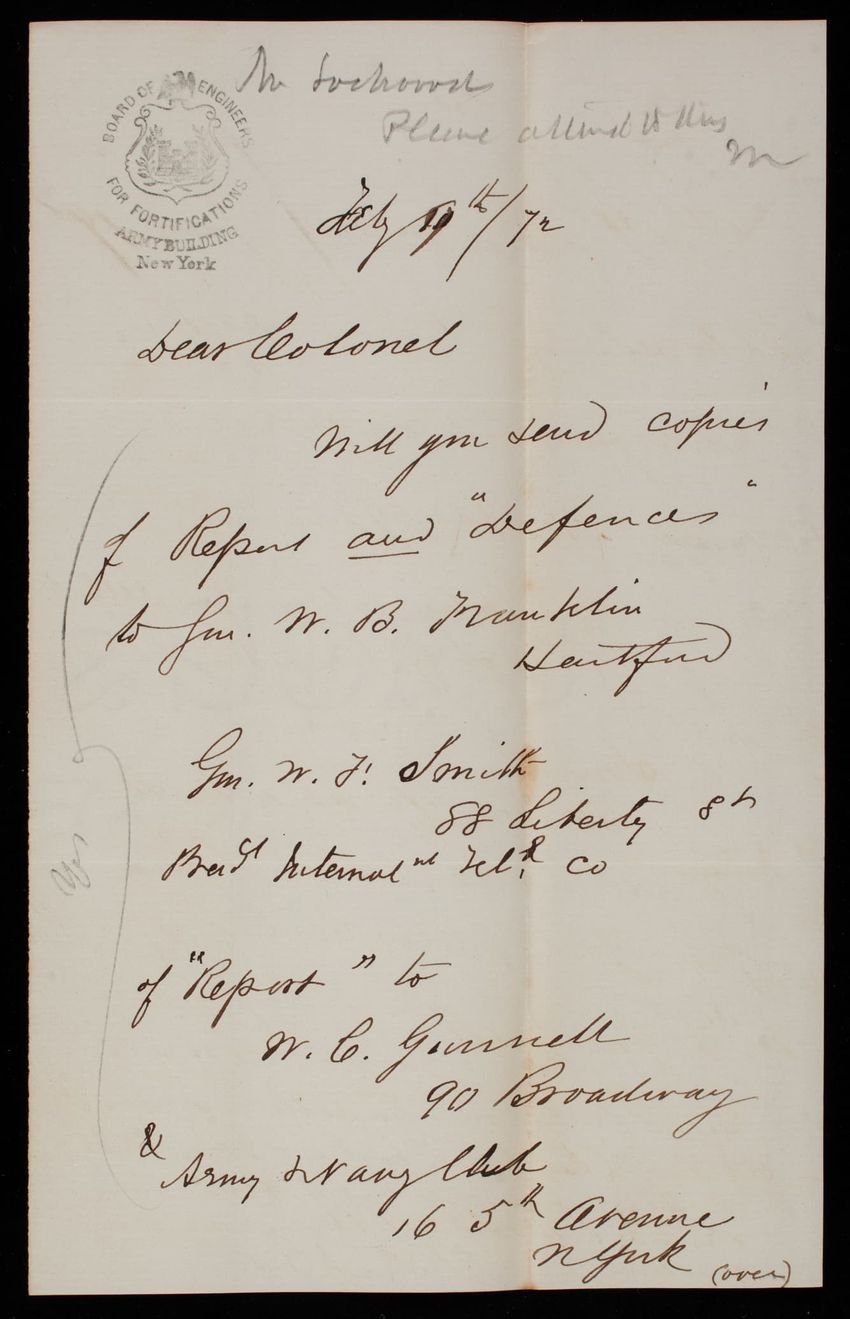 BOARD OF ENGINEERS
FOR FORTIFICATIONS
ARMY BUILDING
New York
Mr Lockwood
Please attend to this
M
Feby 9th/72
Dear Colonel
Will you send copies
of Report and "Defences"
to Gen. W. B. Franklin
Hartford
Gen. W. F. Smith
88 Liberty St
Internal Tel. Co
Yes
of "Report" to
W. C. Gunnell
90 Broadway
& Army & Navy Club
16 5th Avenue
N York
(over)